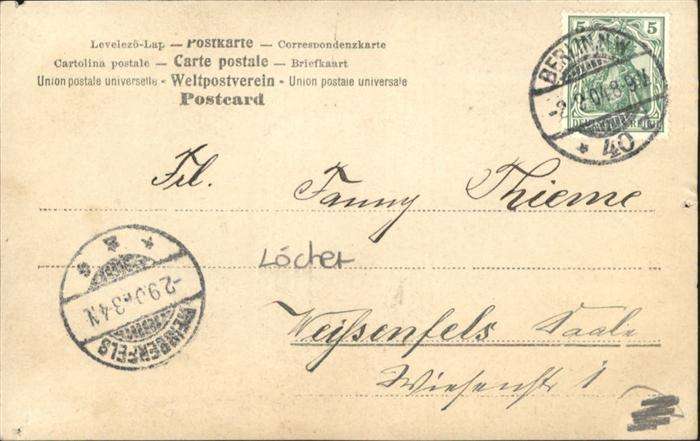 Levelezö-Lap — Postkarte — Correspondenzkarte
Cartolina postale — Carte postale — Briefkaart
Union postale universelle - Weltpostverein - Union postale universale
Postcard
5 5
BERLIN N.W.
40
Frl. Fanny Thieme
Löcher
WEISSENFELS
Weißenfels Saale
Wiesenstr 1